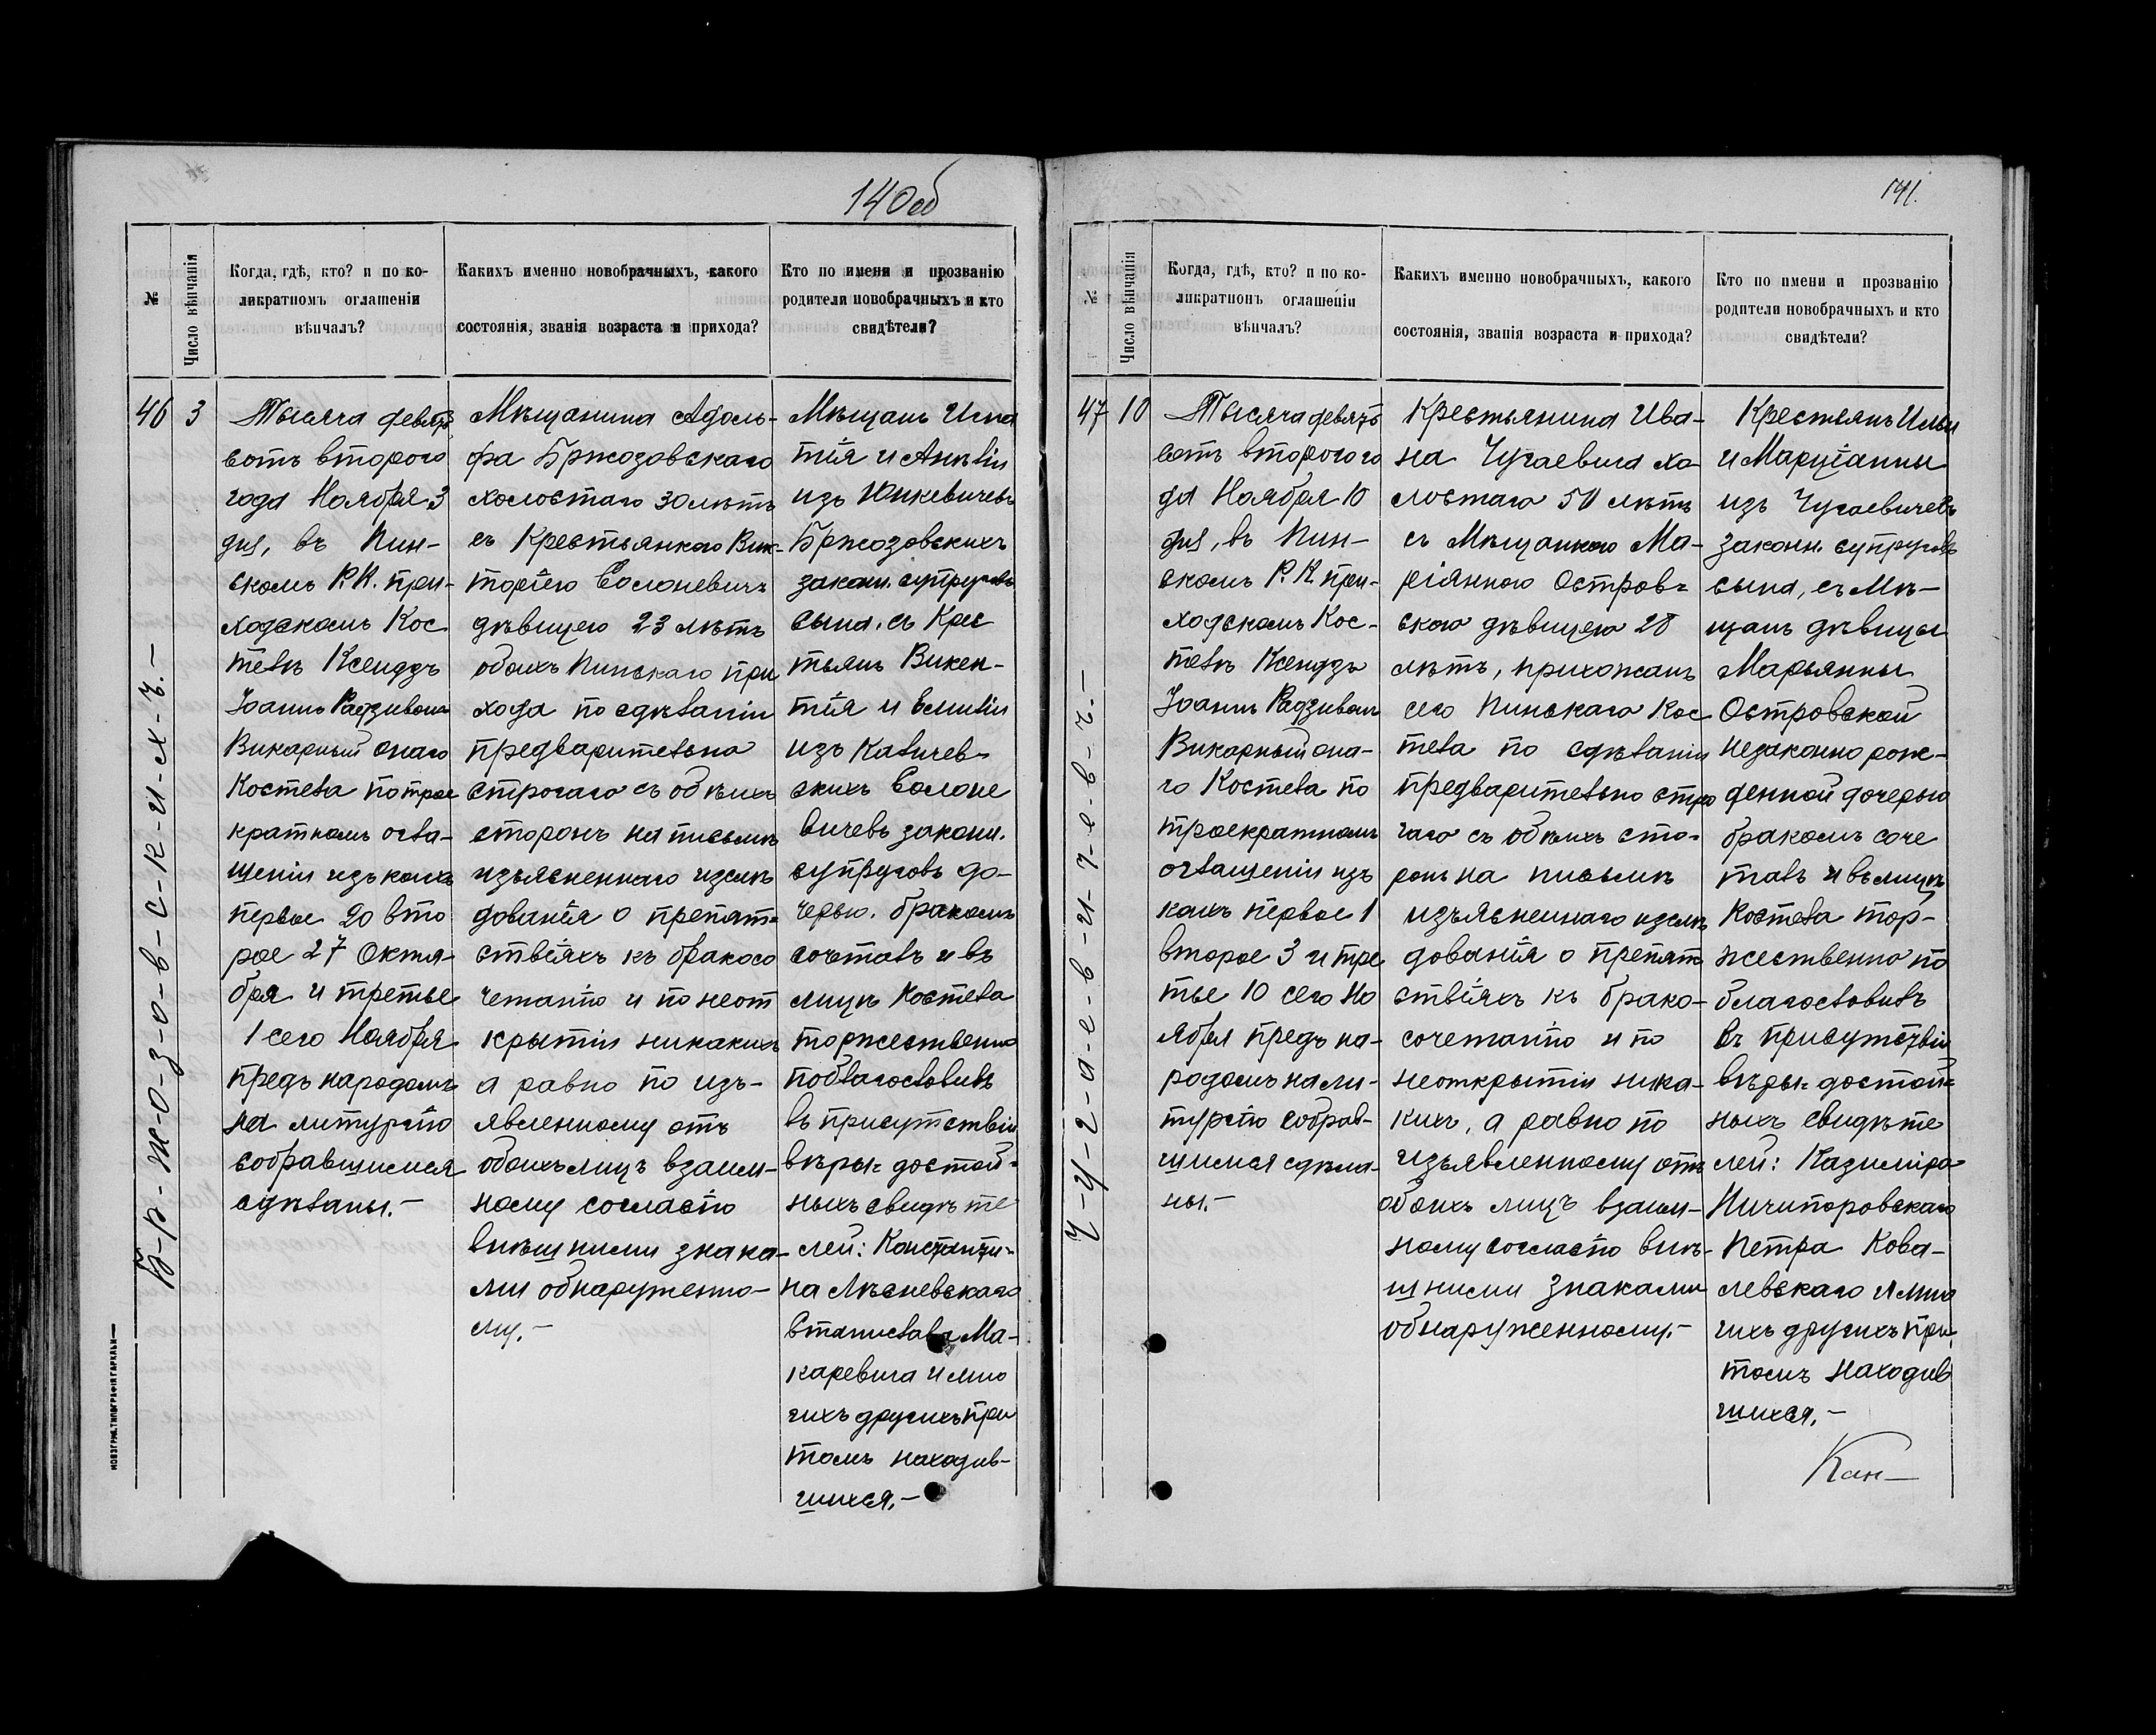 140об
№
Число вѣнчанія
Когда, гдѣ, кто? и по ко-
ликратномъ оглашеніи
вѣнчалъ?
Каихъ именно новобрачныхъ, какого
состоянія, званія возраста и прихода?
Кто по имени и прозванію
родители новобрачныхъ и кто
свидѣтели?
46
3
Б-р-ж-о-з-о-в-с-к-и-х-ъ.-
Тысяча девять
сотъ второго
года Ноября 3
дня, въ Пин-
скомъ Р.К. при-
ходскомъ Кос
телѣ Ксендзъ
Іоаннъ Радзивонъ
Викарный онаго
Костела по трое
кратномъ огла-
шеніи изъ коихъ
первое 20 вто
рое 27 Октя-
бря и третье
1 сего Ноября
предъ народомъ
на литургію
собравшимися
сдѣланы.-
Мѣщанина Адоль-
фа Бржозовскаго
холостаго 30 лѣтъ
съ Крестьянкою Вик-
торіею Солоневичъ
дѣвицею 23 лѣтъ
обоихъ Пинскаго при
хода по сдѣланіи
предварительно
строгаго съ обѣихъ
сторонъ на письмѣ
изъясненнаго изслѣ
дованія о препят-
ствіяхъ къ бракосо
четанію и по неот
крытіи никакихъ
а равно по изъ-
явленному отъ
обоихъ лицъ взаим-
ному согласію
внѣшними знака-
ми обнаруженно-
му.-
Мѣщанъ Игна
тія и Анѣли
изъ Юшкевичевъ
Бржозовскихъ
законн. супруговъ
сына, съ Крес
тьянъ Викен-
тія и Емиліи
изъ Каличев-
скихъ Солоне
вичевъ законн.
супруговъ до-
черью. бракомъ
сочеталъ и въ
лицѣ Костела
торжественно
поблагословилъ
въ присутствіи
вѣры-достой-
ныхъ свидѣте
лей: Константи-
на Лѣсневскаго
Станислава Ма-
каревича и мно
гихъ другихъ при
томъ находив-
шихся.-
НОВОГРУД. ТИПОГРАФІЯ ГАРКАВИ
141.
№
Число вѣнчанія
Когда, гдѣ, кто? и по ко-
ликратномъ оглашеніи
вѣнчалъ?
Каихъ именно новобрачныхъ, какого
состоянія, званія возраста и прихода?
Кто по имени и прозванію
родители новобрачныхъ и кто
свидѣтели?
47
10
Ч-у-г-а-е-в-и-ч-е-в-ъ.-
Тысяча девять
сотъ второго го
да Ноября 10
дня, въ Пин-
скомъ Р.К. при-
ходскомъ Кос-
телѣ Ксендзъ
Іоаннъ Радзивонъ
Викарный она-
го Костела по
троекратномъ
оглашеніи изъ
коихъ первое 1
второе 3 и тре
тье 10 сего Но
ября предъ на-
родомъ на ли-
тургію собрав-
шимися сдѣла-
ны.-
Крестьянина Ива-
на Чугаевича хо
лостаго 50 лѣтъ
съ Мѣщанкою Ма-
ріянною Остров-
скою дѣвицею 28
лѣтъ, прихожанъ
сего Пинскаго Кос
тела по сдѣланіи
предварительно стро
гаго съ обѣихъ сто-
ронъ на письмѣ
изъясненнаго изслѣ
дованія о препят
ствіяхъ къ брако-
сочетанію и по
неоткрытіи ника-
кихъ, а равно по
изъявленному отъ
обоихъ лицъ взаим-
ному согласію внѣ-
шними знаками
обнаруженному.-
Крестьянъ Ильи
и Маріанны
изъ Чугаевичевъ
законн. супруговъ
сына, съ Мѣ-
щанъ дѣвицы
Марьянны
Островской
незаконно рож-
денной дочерью
бракомъ соче
талъ и въ лицѣ
Костела тор-
жественно по
благословилъ
въ присутствіи
вѣры-достой-
ныхъ свидѣте
лей: Казиміра
Ничипоровскаго
Петра Кова-
левскаго и мно
гихъ другихъ при
томъ находив
шихся.-
Кан-